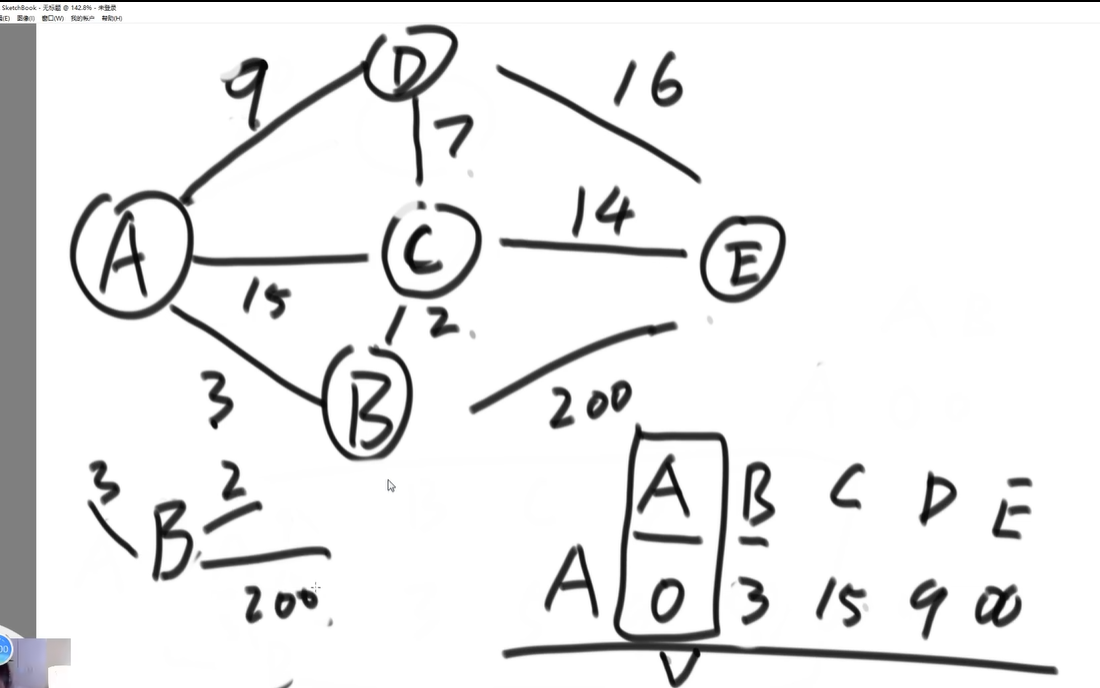 SketchBook - 无标题 @ 142.8% - 未登录
(E) 图像(I) 窗口(W) 我的帐户 帮助(H)
D
9
16
7
14
A
C
E
15
12
3
B
200
3
2
B
200
A B C D E
A 0 3 15 9 ∞